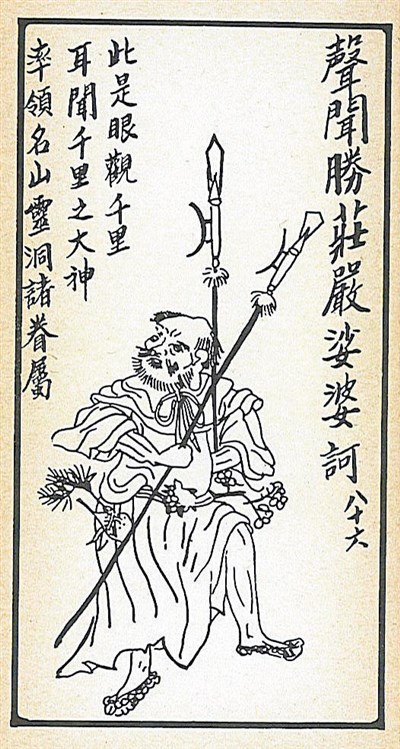 聲聞勝莊嚴娑婆訶 八十六
此是眼觀千里
耳聞千里之大神
率領名山靈洞諸眷屬